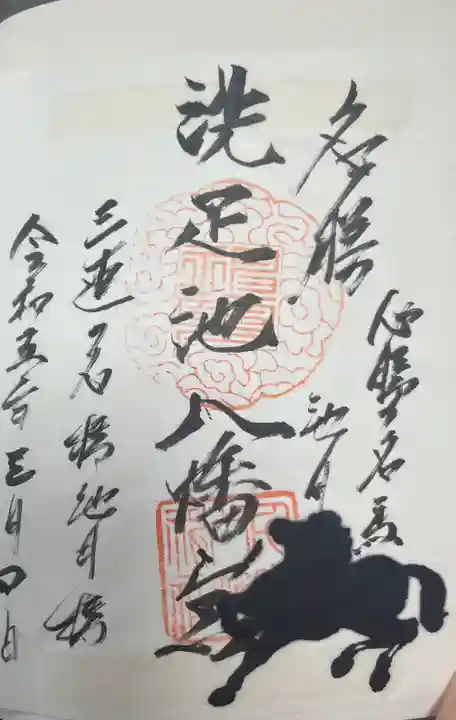 名勝
必勝名馬
池月
洗足池八幡宮
三連太鼓橋池月橋
令和五年三月四日